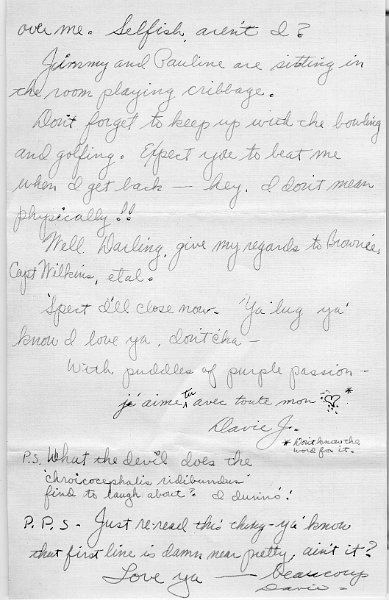 over me. Selfish, aren't I?
Jimmy and Pauline are sitting in
the room playing cribbage.
Don't forget to keep up with the bowling
and golfing. Expect you to beat me
when I get back — hey, I don't mean
physically!!
Well Darling, give my regards to Brownie,
Capt Wilkins, etal.
'Spect I'll close now. 'Ya lug ya'
know I love ya, don'tcha —
With puddles of purple passion -
je aime tu avec toute mon ♡ *
Davie J.
* Don't know the
word for it.
P.S. What the devil does the
'chroicocephalis ridibundus'
find to laugh about? I dunno!
P.P.S - Just reread this thing - ya' know
that first line is damn near pretty, ain't it?
Love ya — beaucoup
Davie -